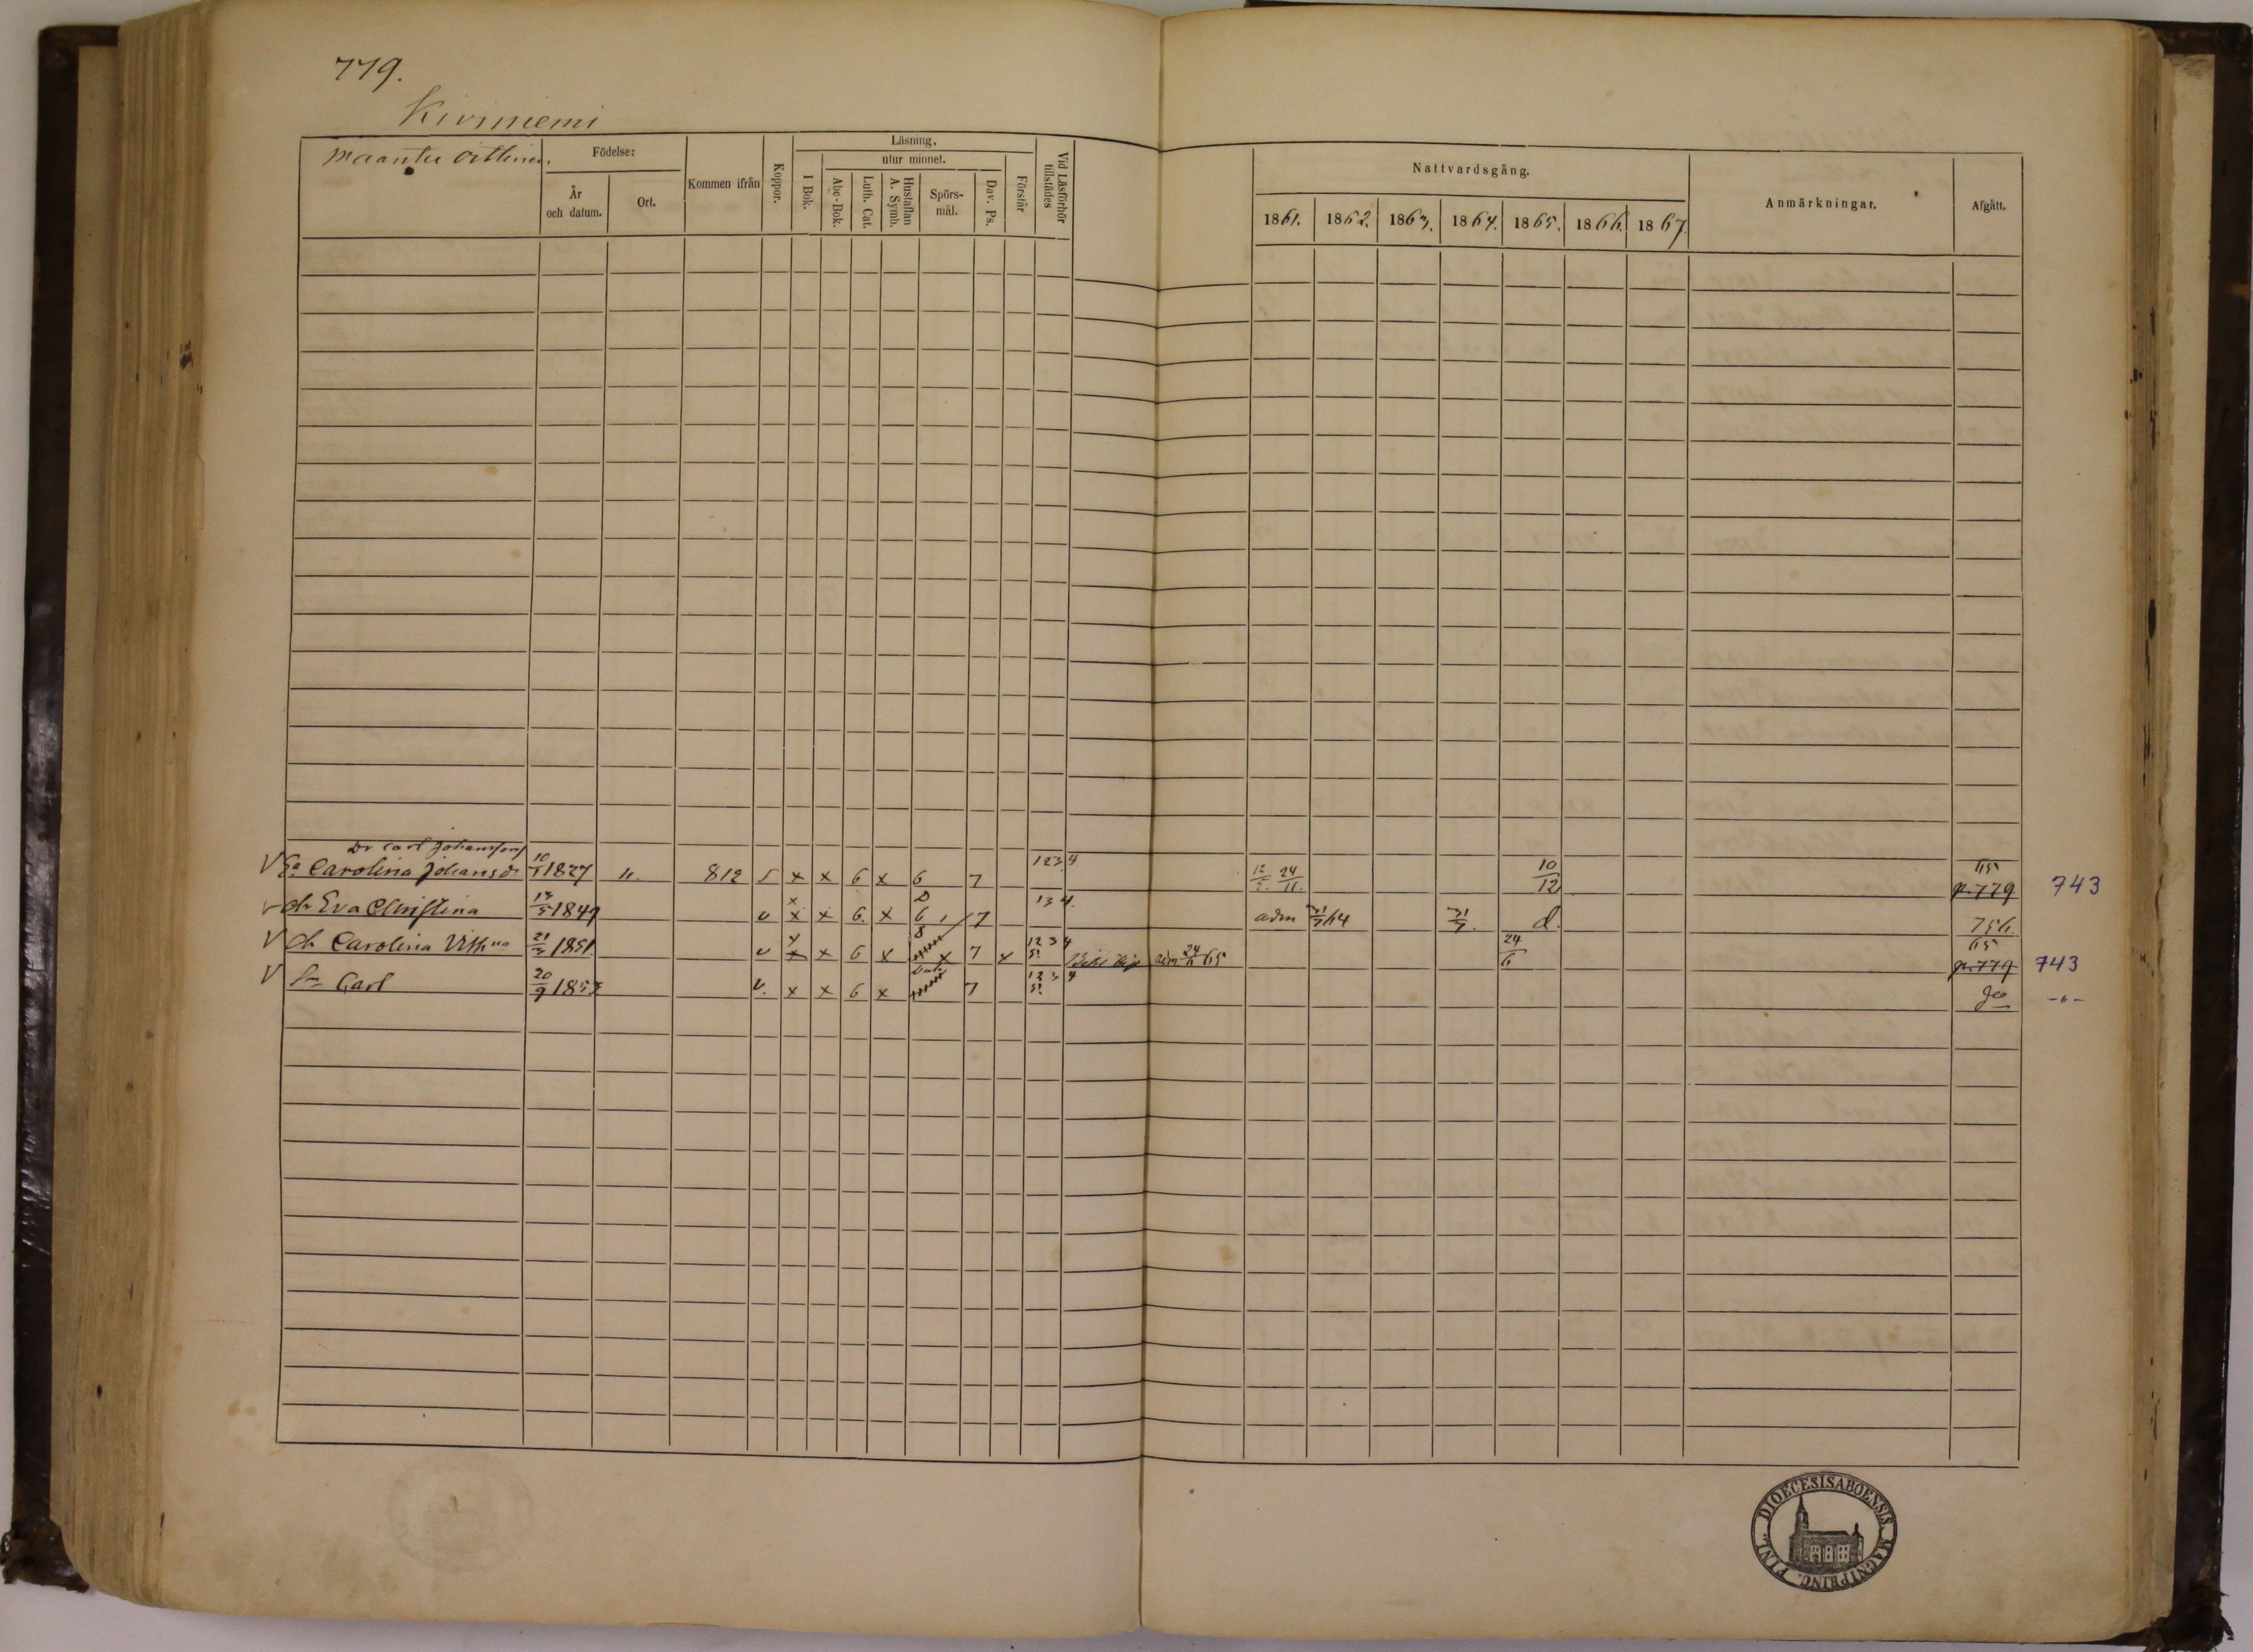 779.
Kiviniemi
Födelse:
År och datum.
Ort.
Kommen ifrån
Koppor.
Läsning,
I Bok.
utur minnet.
Abc-Bok.
Luth. Cat.
Hustaflan A. Symb.
Spörs-mål.
Dav. Ps.
Förstår
Vid Läsförhör tillstädes
Nattvardsgång.
1861. 1862. 1863. 1864. 1865. 1866. 1867.
Anmärkningar.
Afgått.
Dr Carl Johansson
Carolina Johansdr 10/5 1827 812 x x 6 x 6 7 1 2 3 4 12/5 24/11 10/12 65 p. 779 743
dr Eva Christina 1849 v x x 6. x 6 7 1 3 4. adm 64 d. 756
dr Carolina 21/3 1851 v x x 6 x x 7 x 1 2 3 4 5 adm 24/6 65 24/6 65 p. 779 743
Sn Carl 20/9 185 v. x x 6 x 7 1 2 3 4 5 -"-
DIOECESIS ABOENSIS. MAGNI PRINC. FINL.